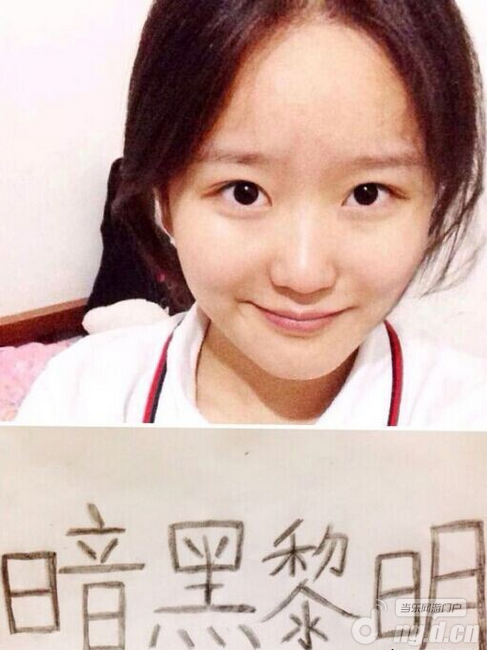 暗黑黎明
当乐网游门户
ng.d.cn